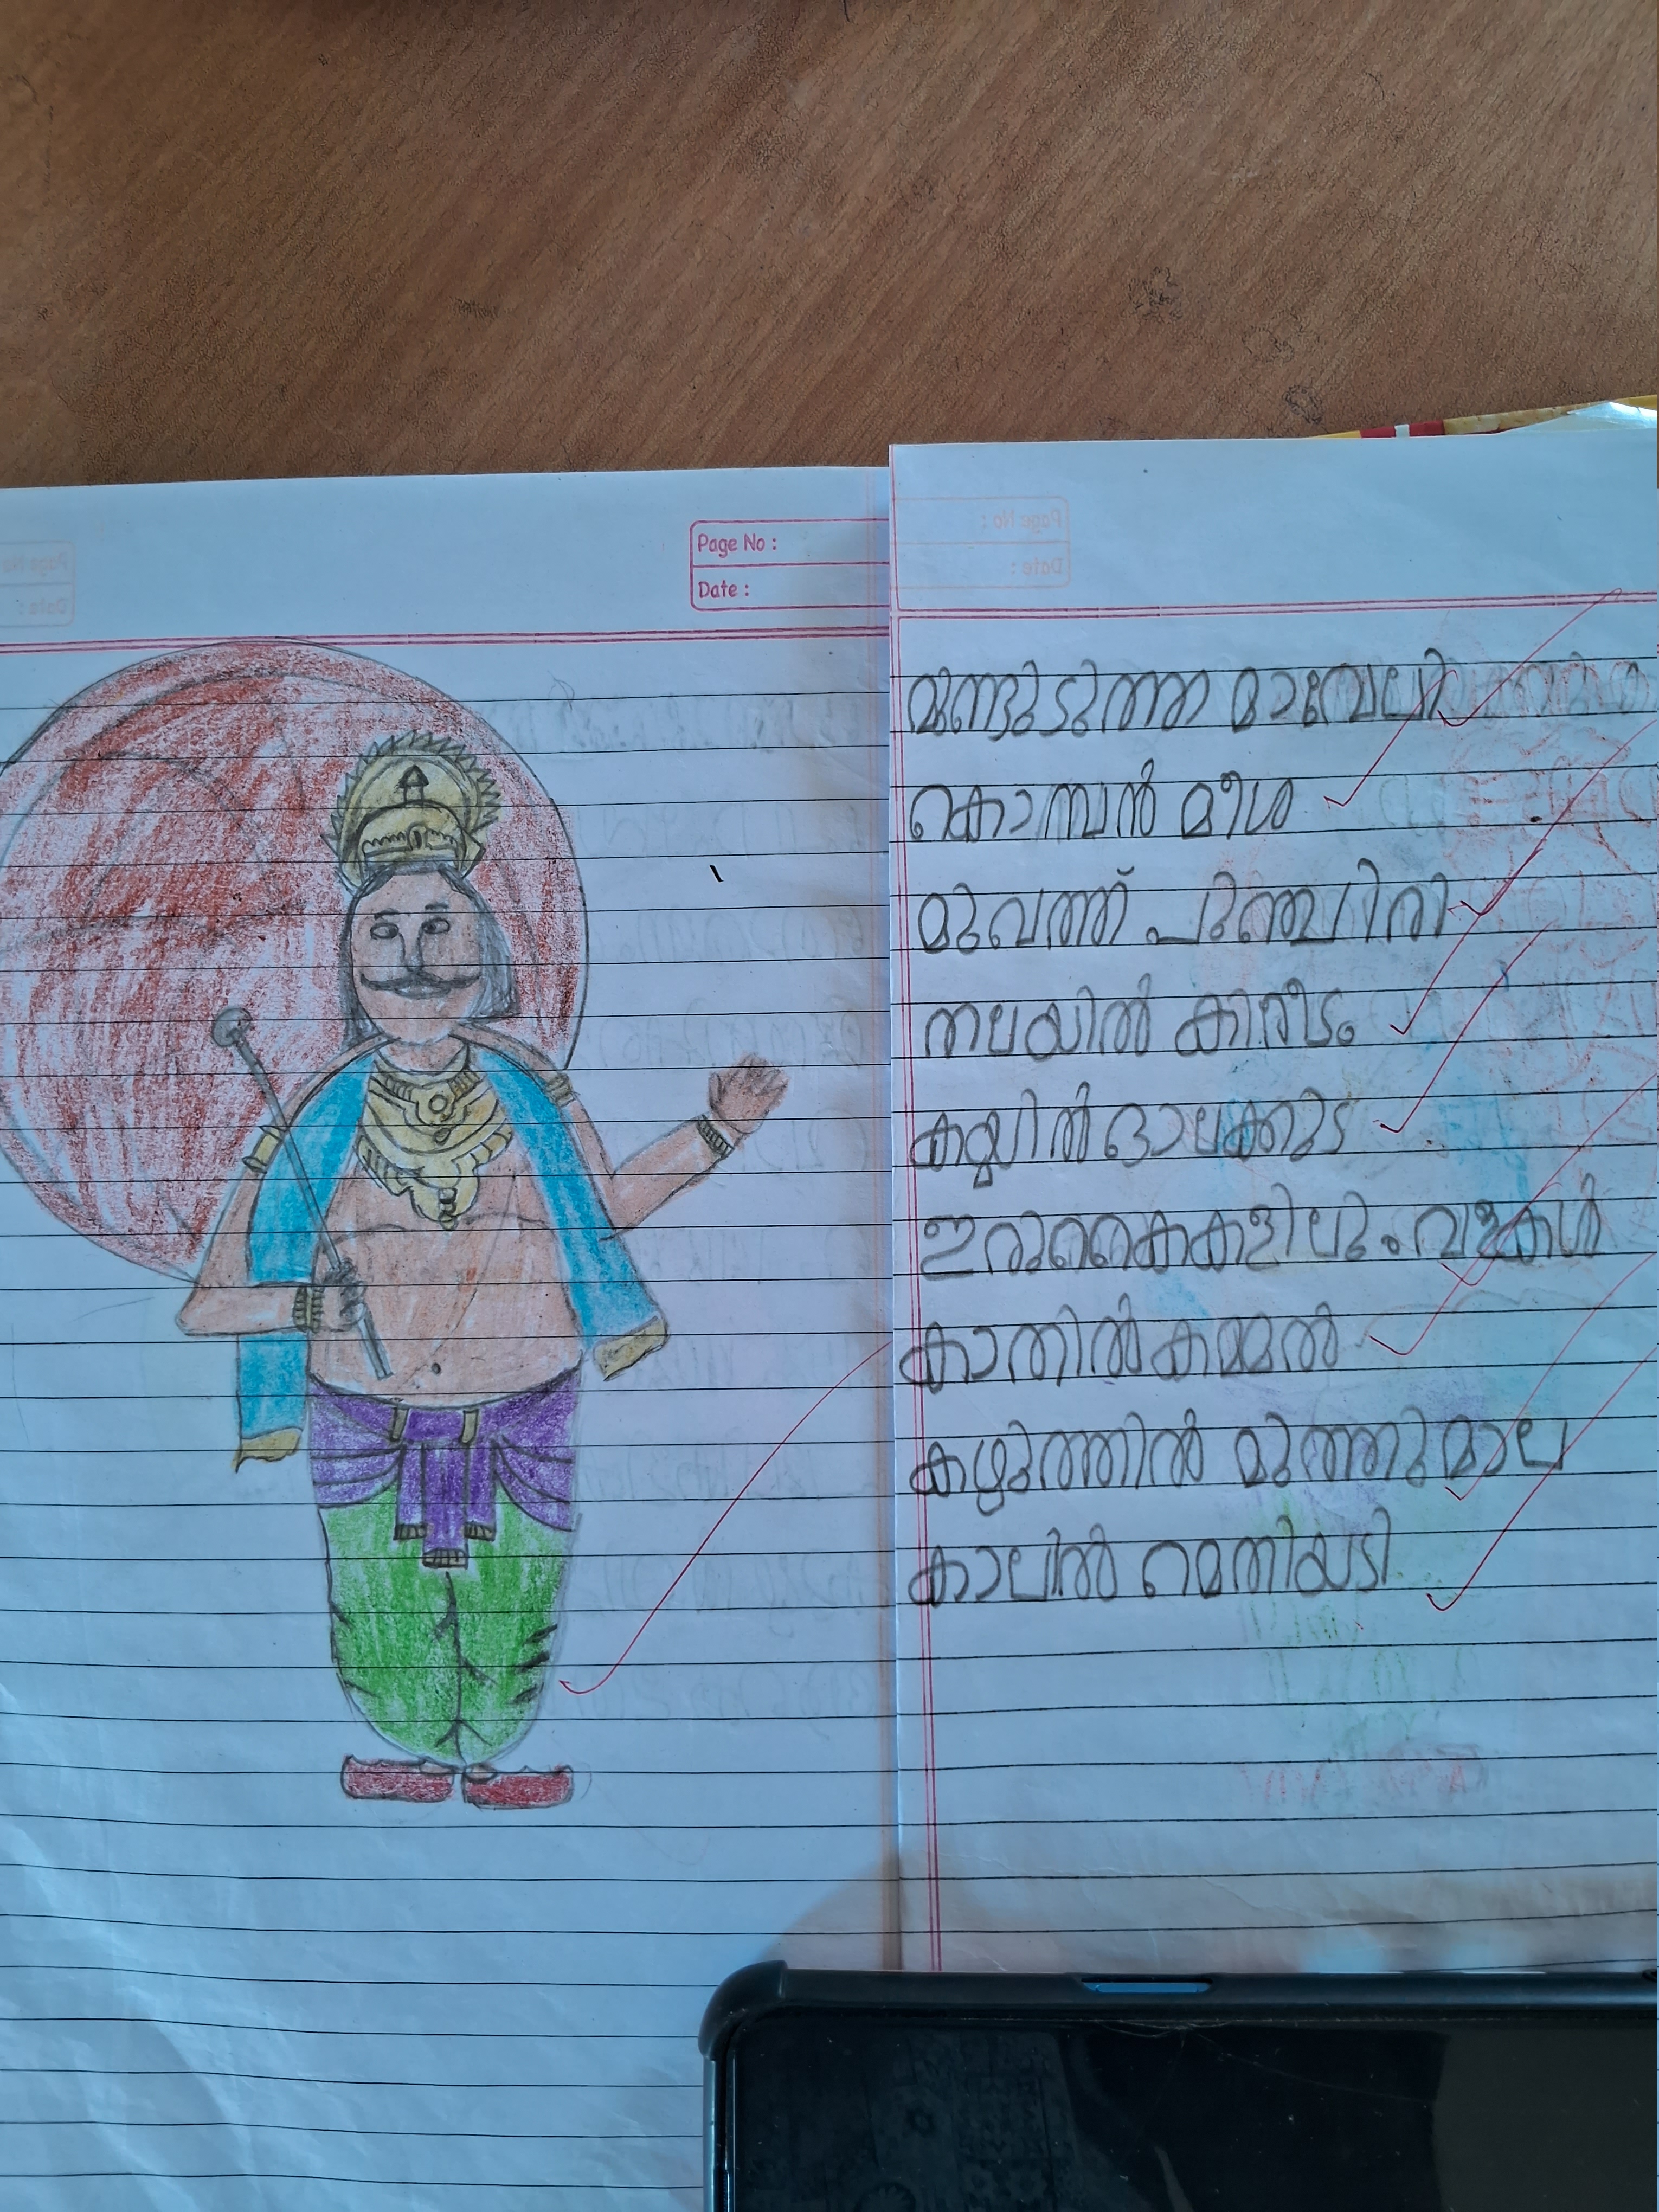 Page No :
Date :
മുണ്ടുടുത്ത മാവേലി
കൊമ്പൻ മീശ
മുഖത്ത് പുഞ്ചിരി
തലയിൽ കിരീടം
കയ്യിൽ ഓലക്കുട
ഇരുകൈകളിലും വളകൾ
കാതിൽ കമ്മൽ
കഴുത്തിൽ മുത്തുമാല
കാലിൽ മെതിയടി